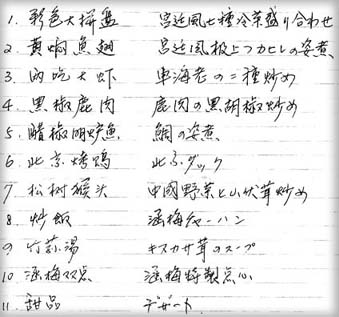 1. 彩色大拼盘 宮廷風七種冷菜盛り合わせ
2. 黄焖魚翅 宮廷風極上フカヒレの姿煮
3. 両吃大虾 車海老の二種炒め
4. 黒椒鹿肉 鹿肉の黒胡椒炒め
5. 鯛の姿煮
6. 北京烤鴨 北京ダック
7. 松树猴头 中國野菜と山伏茸炒め
8. 炒飯 涵梅チャーハン
9. 竹荪湯 キヌガサ茸のスープ
10. 涵梅双点 涵梅特製点心
11. 甜品 デザート